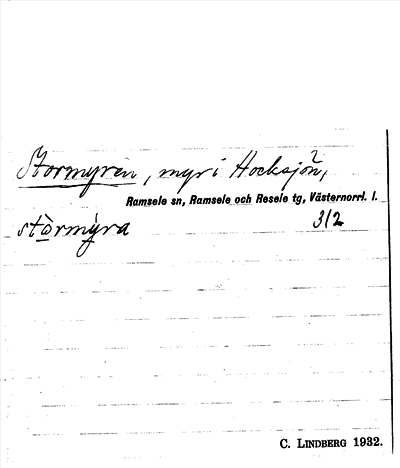 Stormyren, myr i Hocksjön,²
Ramsele sn, Ramsele och Resele tg, Västernorrl. l.
stòrmýra 3/2
C. LINDBERG 1932.